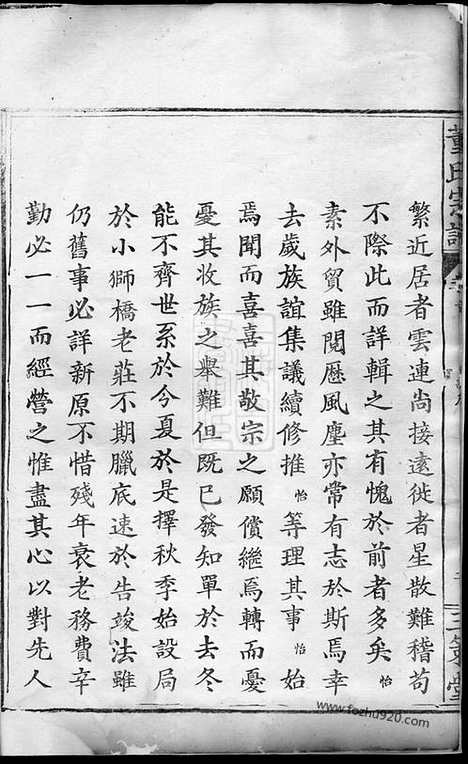 董氏宗譜
三策堂
繁近居者雲連尚接遠徙者星散難稽苟
不際此而詳輯之其有愧於前者多矣怡
素外貿雖閱歷風塵亦常有志於斯焉幸
去歲族誼集議續修推怡等理其事怡始
焉聞而喜喜其敬宗之願償繼焉轉而憂
憂其收族之舉難但既已發知單於去冬
能不齊世系於今夏於是擇秋季始設局
於小獅橋老莊不期臘底速於告竣法雖
仍舊事必詳新原不惜殘年衰老務費辛
勤必一一而經營之惟盡其心以對先人
www.fozhu920.com